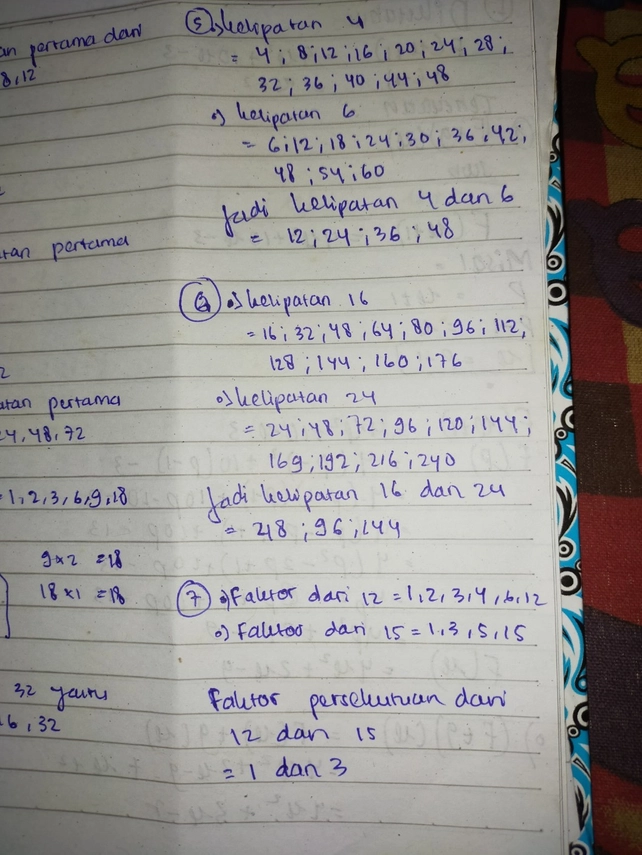 an pertama dari
8,12
tan pertama
2
atan pertama
24, 48, 72
= 1, 2, 3, 6, 9, 18
9 x 2 = 18
18 x 1 = 18
32 yaitu
6, 32
5 Kelipatan 4
= 4; 8; 12; 16; 20; 24; 28;
32; 36; 40; 44; 48
o) kelipatan 6
= 6; 12; 18; 24; 30; 36; 42;
48; 54; 60
Jadi kelipatan 4 dan 6
= 12; 24; 36; 48
6 o) kelipatan 16
= 16; 32; 48; 64; 80; 96; 112;
128; 144; 160; 176
o) kelipatan 24
= 24; 48; 72; 96; 120; 144;
169; 192; 216; 240
Jadi kelipatan 16 dan 24
= 48; 96; 144
7 o) Faktor dari 12 = 1, 2, 3, 4, 6, 12
o) Faktor dari 15 = 1, 3, 5, 15
Faktor persekutuan dari
12 dan 15
= 1 dan 3